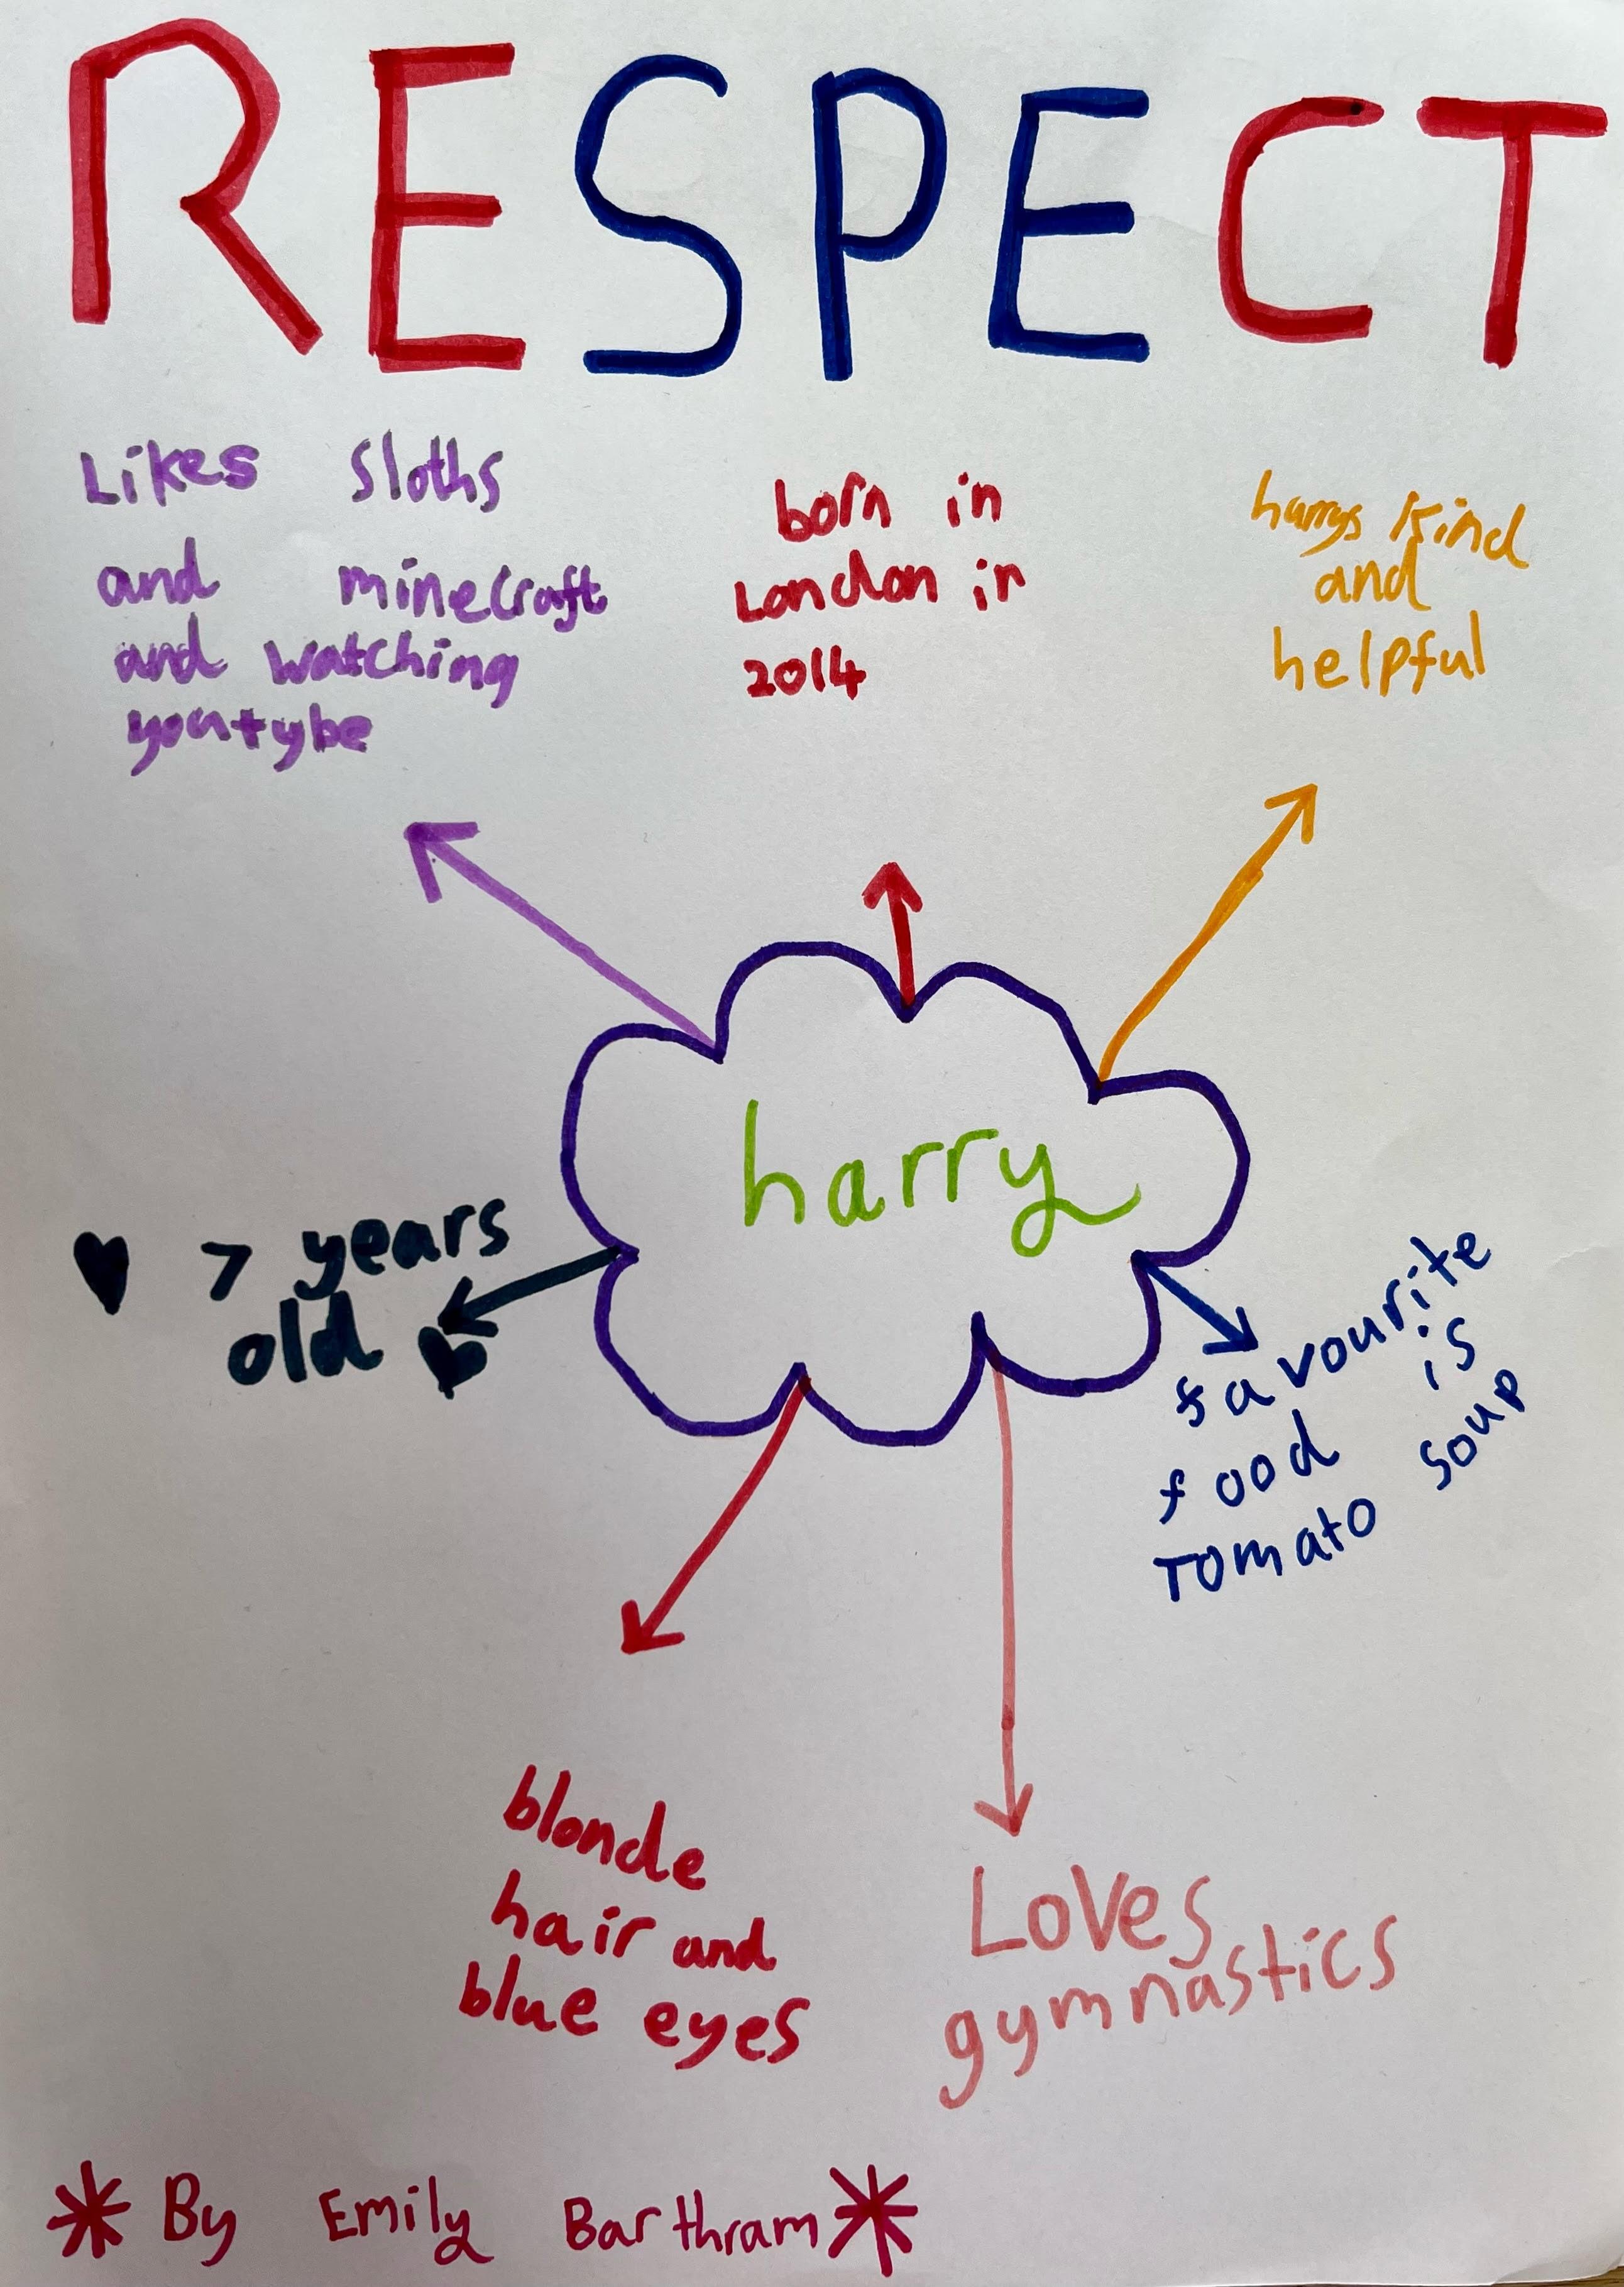 RESPECT
Likes sloths
and minecraft
and watching
youtybe
born in
London in
2014
harrys kind
and
helpful
harry
7 years
old
favourite
food is
Tomato soup
blonde
hair and
blue eyes
Loves
gymnastics
By Emily Barthram